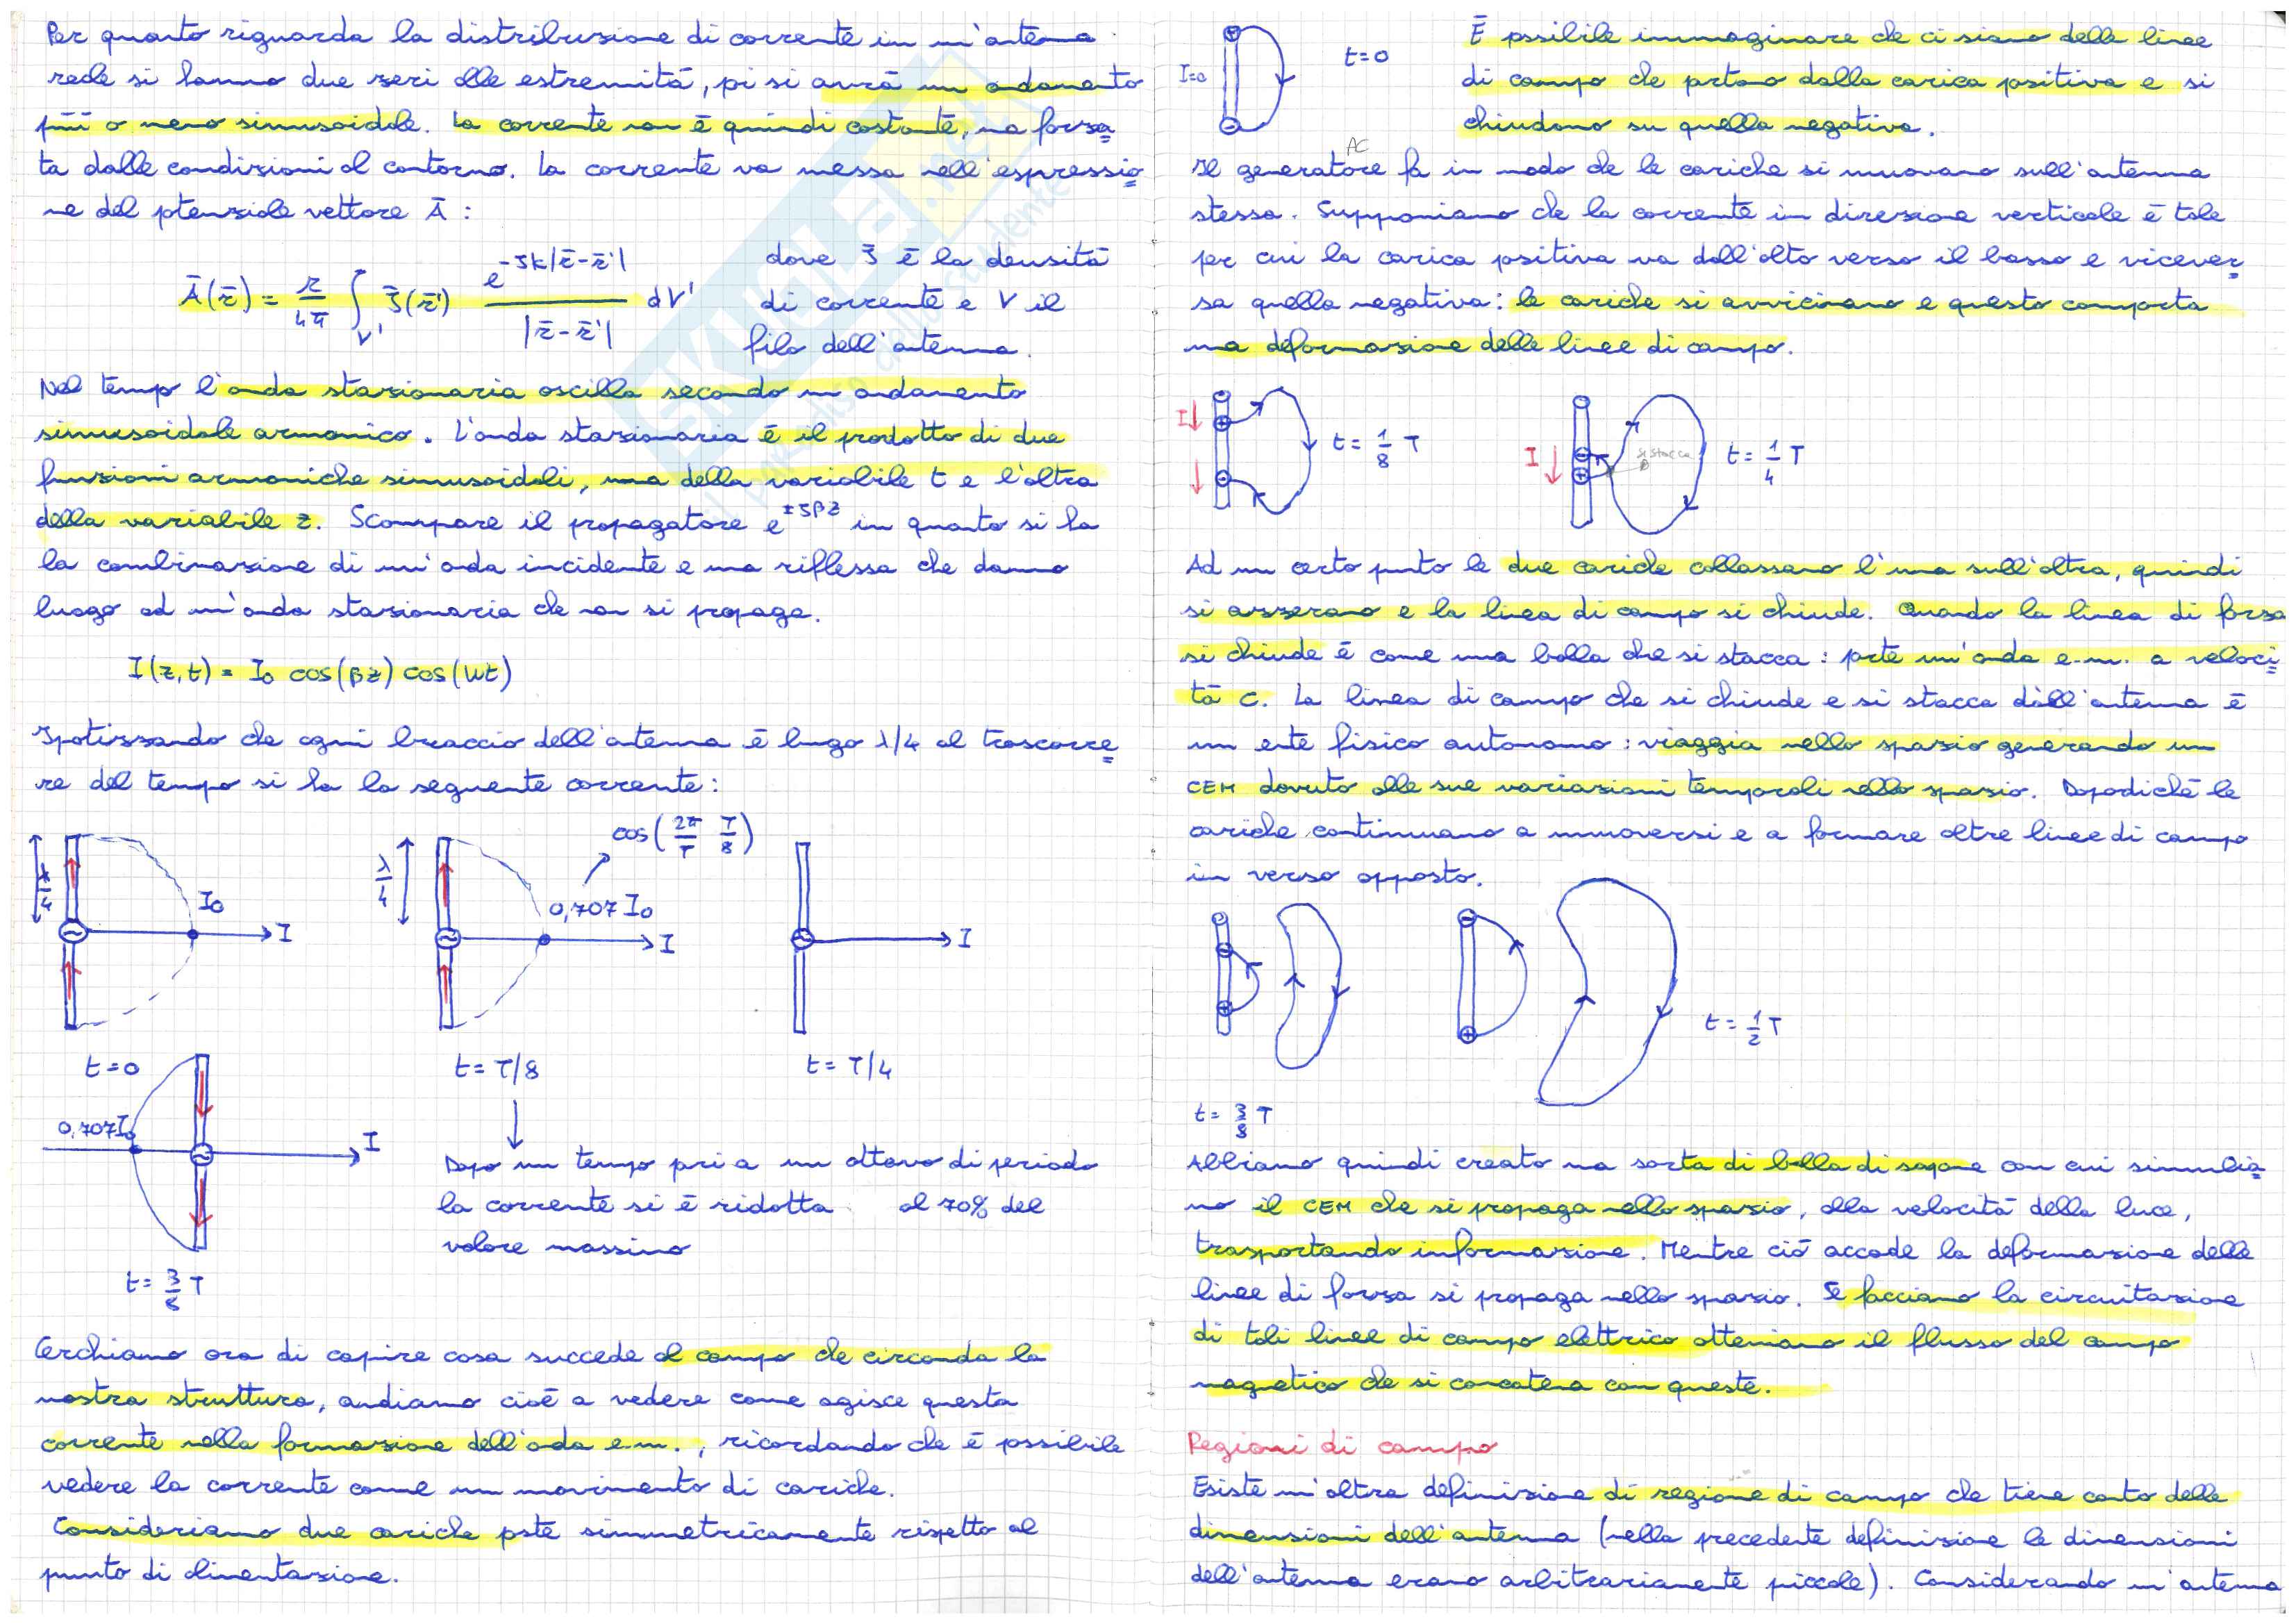 Per quanto riguarda la distribuzione di corrente in un'antenna
reale si hanno due zeri alle estremità, poi si avrà un andamento
più o meno sinusoidale. La corrente non è quindi costante, ma forza=
ta dalle condizioni al contorno. La corrente va messa nell'espressio=
ne del potenziale vettore Ā :
Ā(r̄) = μ/4π ∫V' J̄(r̄') e^(-jk|r̄-r̄'|) / |r̄-r̄'| dV'
dove J̄ è la densità
di corrente e V il
filo dell'antenna.
Nel tempo l'onda stazionaria oscilla secondo un andamento
sinusoidale armonico. L'onda stazionaria è il prodotto di due
funzioni armoniche sinusoidali, una della variabile t e l'altra
della variabile z. Scompare il propagatore e^(±jβz) in quanto si ha
la combinazione di un'onda incidente e una riflessa che danno
luogo ad un'onda stazionaria che non si propaga.
I(z,t) = I0 cos(βz) cos(ωt)
Ipotizzando che ogni braccio dell'antenna è lungo λ/4 al trascorre=
re del tempo si ha la seguente corrente:
λ/4
I0
I
t=0
λ/4
cos(2π/T T/8)
0,707 I0
I
t= T/8
I
t= T/4
0,707I0
I
t= 3/8 T
Dopo un tempo pari a un ottavo di periodo
la corrente si è ridotta al 70% del
valore massimo
Cerchiamo ora di capire cosa succede al campo che circonda la
nostra struttura, andiamo cioè a vedere come agisce questa
corrente nella formazione dell'onda e.m., ricordando che è possibile
vedere la corrente come un movimento di cariche.
Consideriamo due cariche poste simmetricamente rispetto al
punto di alimentazione.
+
I=0
-
t=0
È possibile immaginare che ci siano delle linee
di campo che partono dalla carica positiva e si
chiudono su quella negativa.
AC
Il generatore fa in modo che le cariche si muovano sull'antenna
stessa. Supponiamo che la corrente in direzione verticale è tale
per cui la carica positiva va dall'alto verso il basso e vicever=
sa quella negativa: le cariche si avvicinano e questo comporta
una deformazione delle linee di campo.
I
+
-
t= 1/8 T
I
-
+
si stacca
t= 1/4 T
Ad un certo punto le due cariche collassano l'una sull'altra, quindi
si azzerano e la linea di campo si chiude. Quando la linea di forza
si chiude è come una bolla che si stacca: parte un'onda e.m. a veloci=
tà c. La linea di campo che si chiude e si stacca dall'antenna è
un ente fisico autonomo: viaggia nello spazio generando un
CEM dovuto alle sue variazioni temporali nello spazio. Dopodiché le
cariche continuano a muoversi e a formare altre linee di campo
in verso opposto.
-
+
t= 3/8 T
-
+
t= 1/2 T
Abbiamo quindi creato una sorta di bolla di sapone con cui simulia=
mo il CEM che si propaga nello spazio, alla velocità della luce,
trasportando informazione. Mentre ciò accade la deformazione delle
linee di forza si propaga nello spazio. Se facciamo la circuitazione
di tali linee di campo elettrico otteniamo il flusso del campo
magnetico che si concatena con queste.
Regioni di campo
Esiste un'altra definizione di regione di campo che tiene conto delle
dimensioni dell'antenna (nella precedente definizione le dimensioni
dell'antenna erano arbitrariamente piccole). Considerando un'antenna